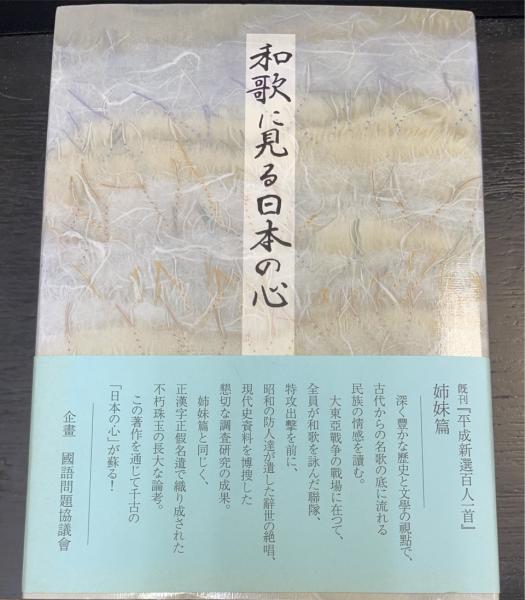 和歌に見る日本の心
既刊『平成新選百人一首』
姉妹篇
深く豐かな歷史と文學の視點で、
古代からの名歌の底に流れる
民族の情感を讀む。
大東亞戰爭の戰場に在つて、
全員が和歌を詠んだ聯隊、
特攻出擊を前に、
昭和の防人達が遺した辭世の絶唱、
現代史資料を博搜した
懇切な調査硏究の成果。
姉妹篇と同じく、
正漢字正假名遣で織り成された
不朽珠玉の長大な論考。
この著作を通じて千古の
「日本の心」が蘇る！
企畫　國語問題協議會